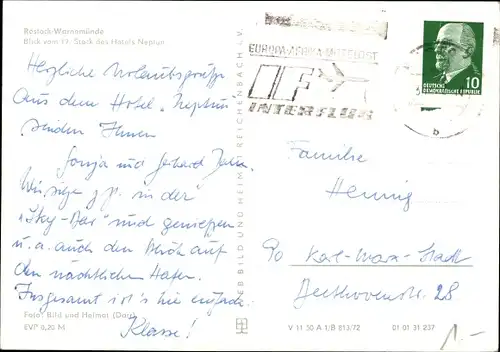 Rostock-Warnemünde
Blick vom 17. Stock des Hotels Neptun
Herzliche Urlaubsgrüße
aus dem Hotel „Neptun"
senden Ihnen
Sonja und Gerhard
Wir sitzen z. Z. in der
"Sky-Bar" und genießen
u. a. auch den Blick auf
den nächtlichen Hafen.
Insgesamt ist's hier einfach
Klasse!
Foto: Bild und Heimat
EVP 0,20 M
VEB BILD UND HEIMAT REICHENBACH i. V.
EUROPA-AFRIKA-NAHOST
IF
INTERFLUG
10
DEUTSCHE
DEMOKRATISCHE REPUBLIK
b
Familie
Hennig
90 Karl-Marx-Stadt
Beethovenstr. 28
V 11 50 A 1/B 813/72
01 01 31 237
1.-